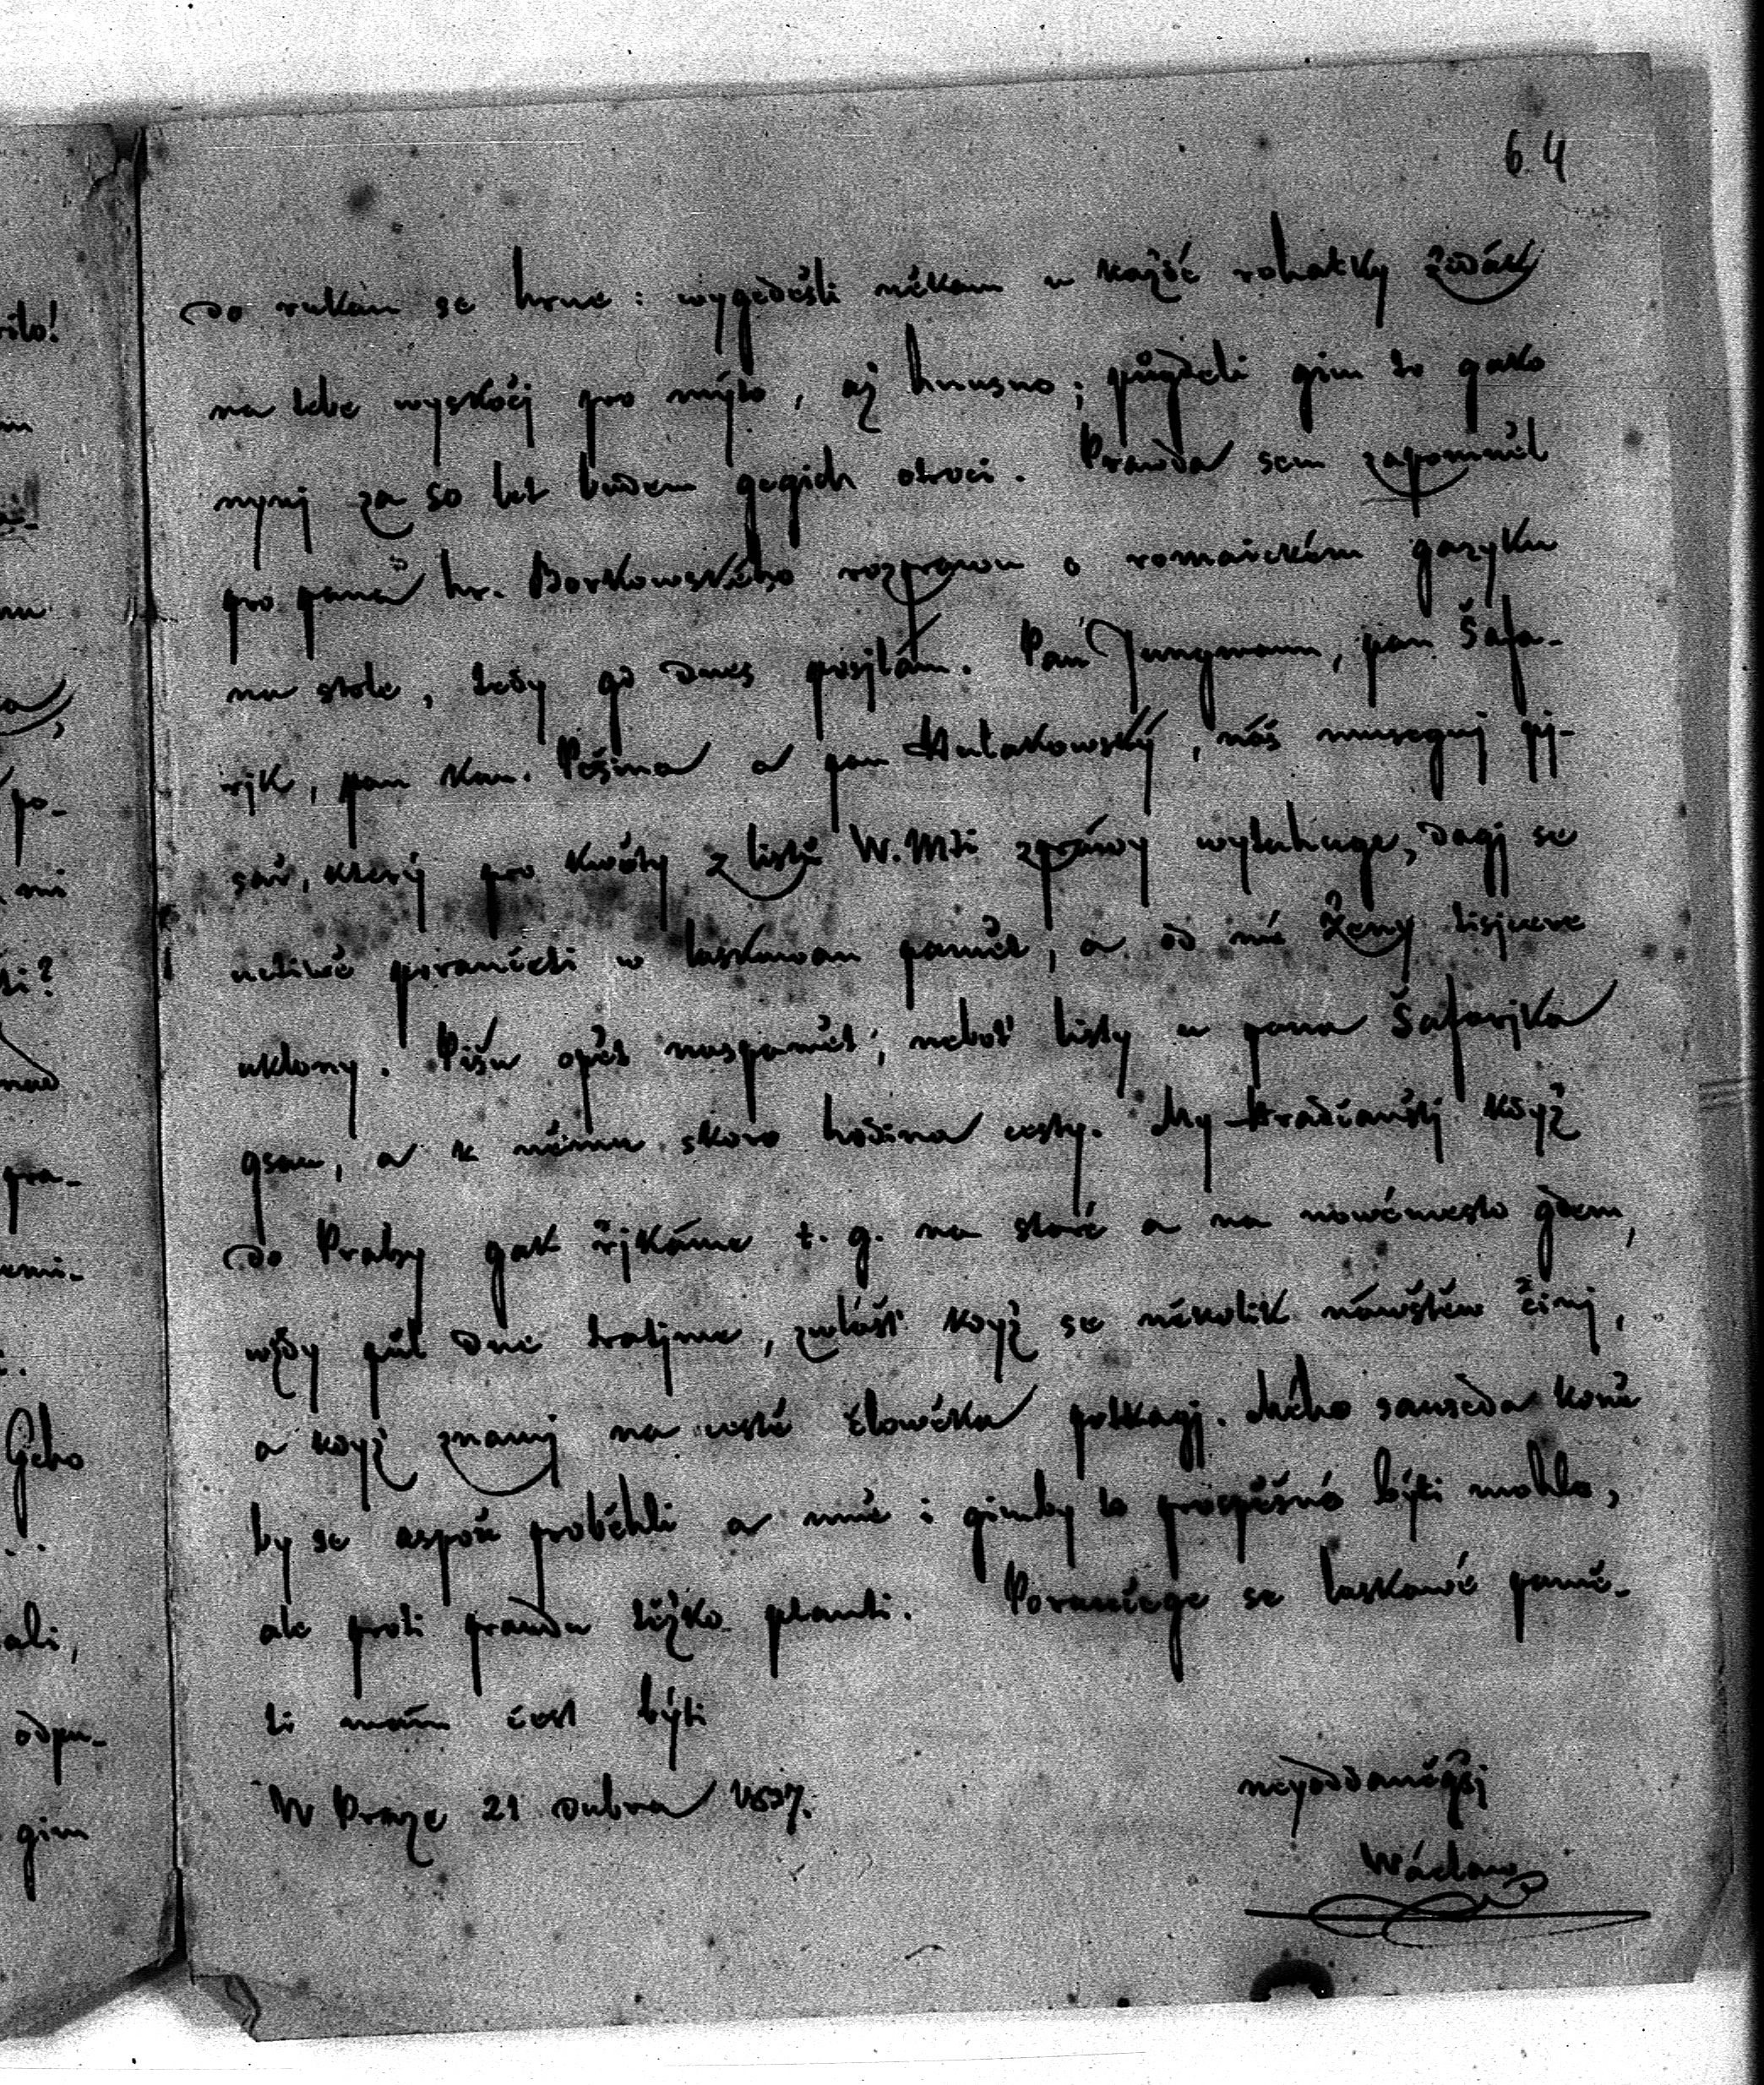 64
do rukau se hrne: wygedešli někam u každé rohatky židák
na tebe wyskočj pro mýto, až hnusno; půgdeli gim to gako
nynj za 50 let budem gegich otroci. Prawda sem zapomněl
pro pana hr. Borkowského rozprawu o romaickém gazyku
na stole, tedy gi dnes posjlám. Pan Jungmann, pan Šafa-
řjk, pan kan. Pešina a pan Hulakowský, náš musegnj pj-
sař, který pro Kwěty z listů W. Mti zpráwy wytahuge, dagj se
uctiwě poraučeti w laskawau paměť, a od mé ženy tisjcere
uklony. Pjšu opět nazpaměť; neboť listy u pana Šafarjka
gsau, a k němu skoro hodina cesty. My Hradčanštj když
do Prahy gak řjkáme t. g. na staré a na nowé město gdem,
wždy půl dne tratjme, zwlášť když se několik náwštěw činj,
a když znamj na cestě člowěka potkagj. Mého sauseda koně
by se aspoň proběhli a mně i gimby to prospěšno býti mohlo,
ale proti praudu těžko plauti. Poraučege se laskawé pamě-
ti mám čest býti
W Praze 21 dubna 1837.
neyoddaněgšj
Wáclaw
rilo!
po-
mi
ti?
nad
pra-
Geho
ali,
odpu-
gim